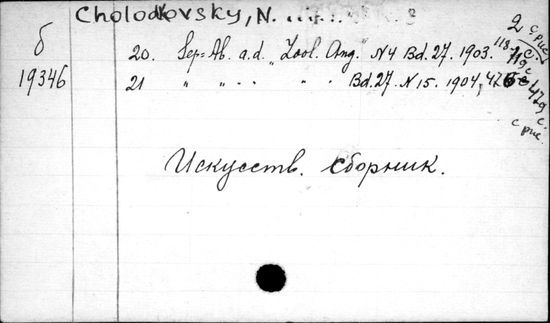 Cholodkovsky, N.
б
19346
20. Sep=Ab. a.d. „Zool. Anz." N 4 Bd. 27. 1903. 118-119 с. с рис.
21 " " . . " . . Bd. 27. N 15. 1904, 476-479 с. с рис.
Искусств. сборник.